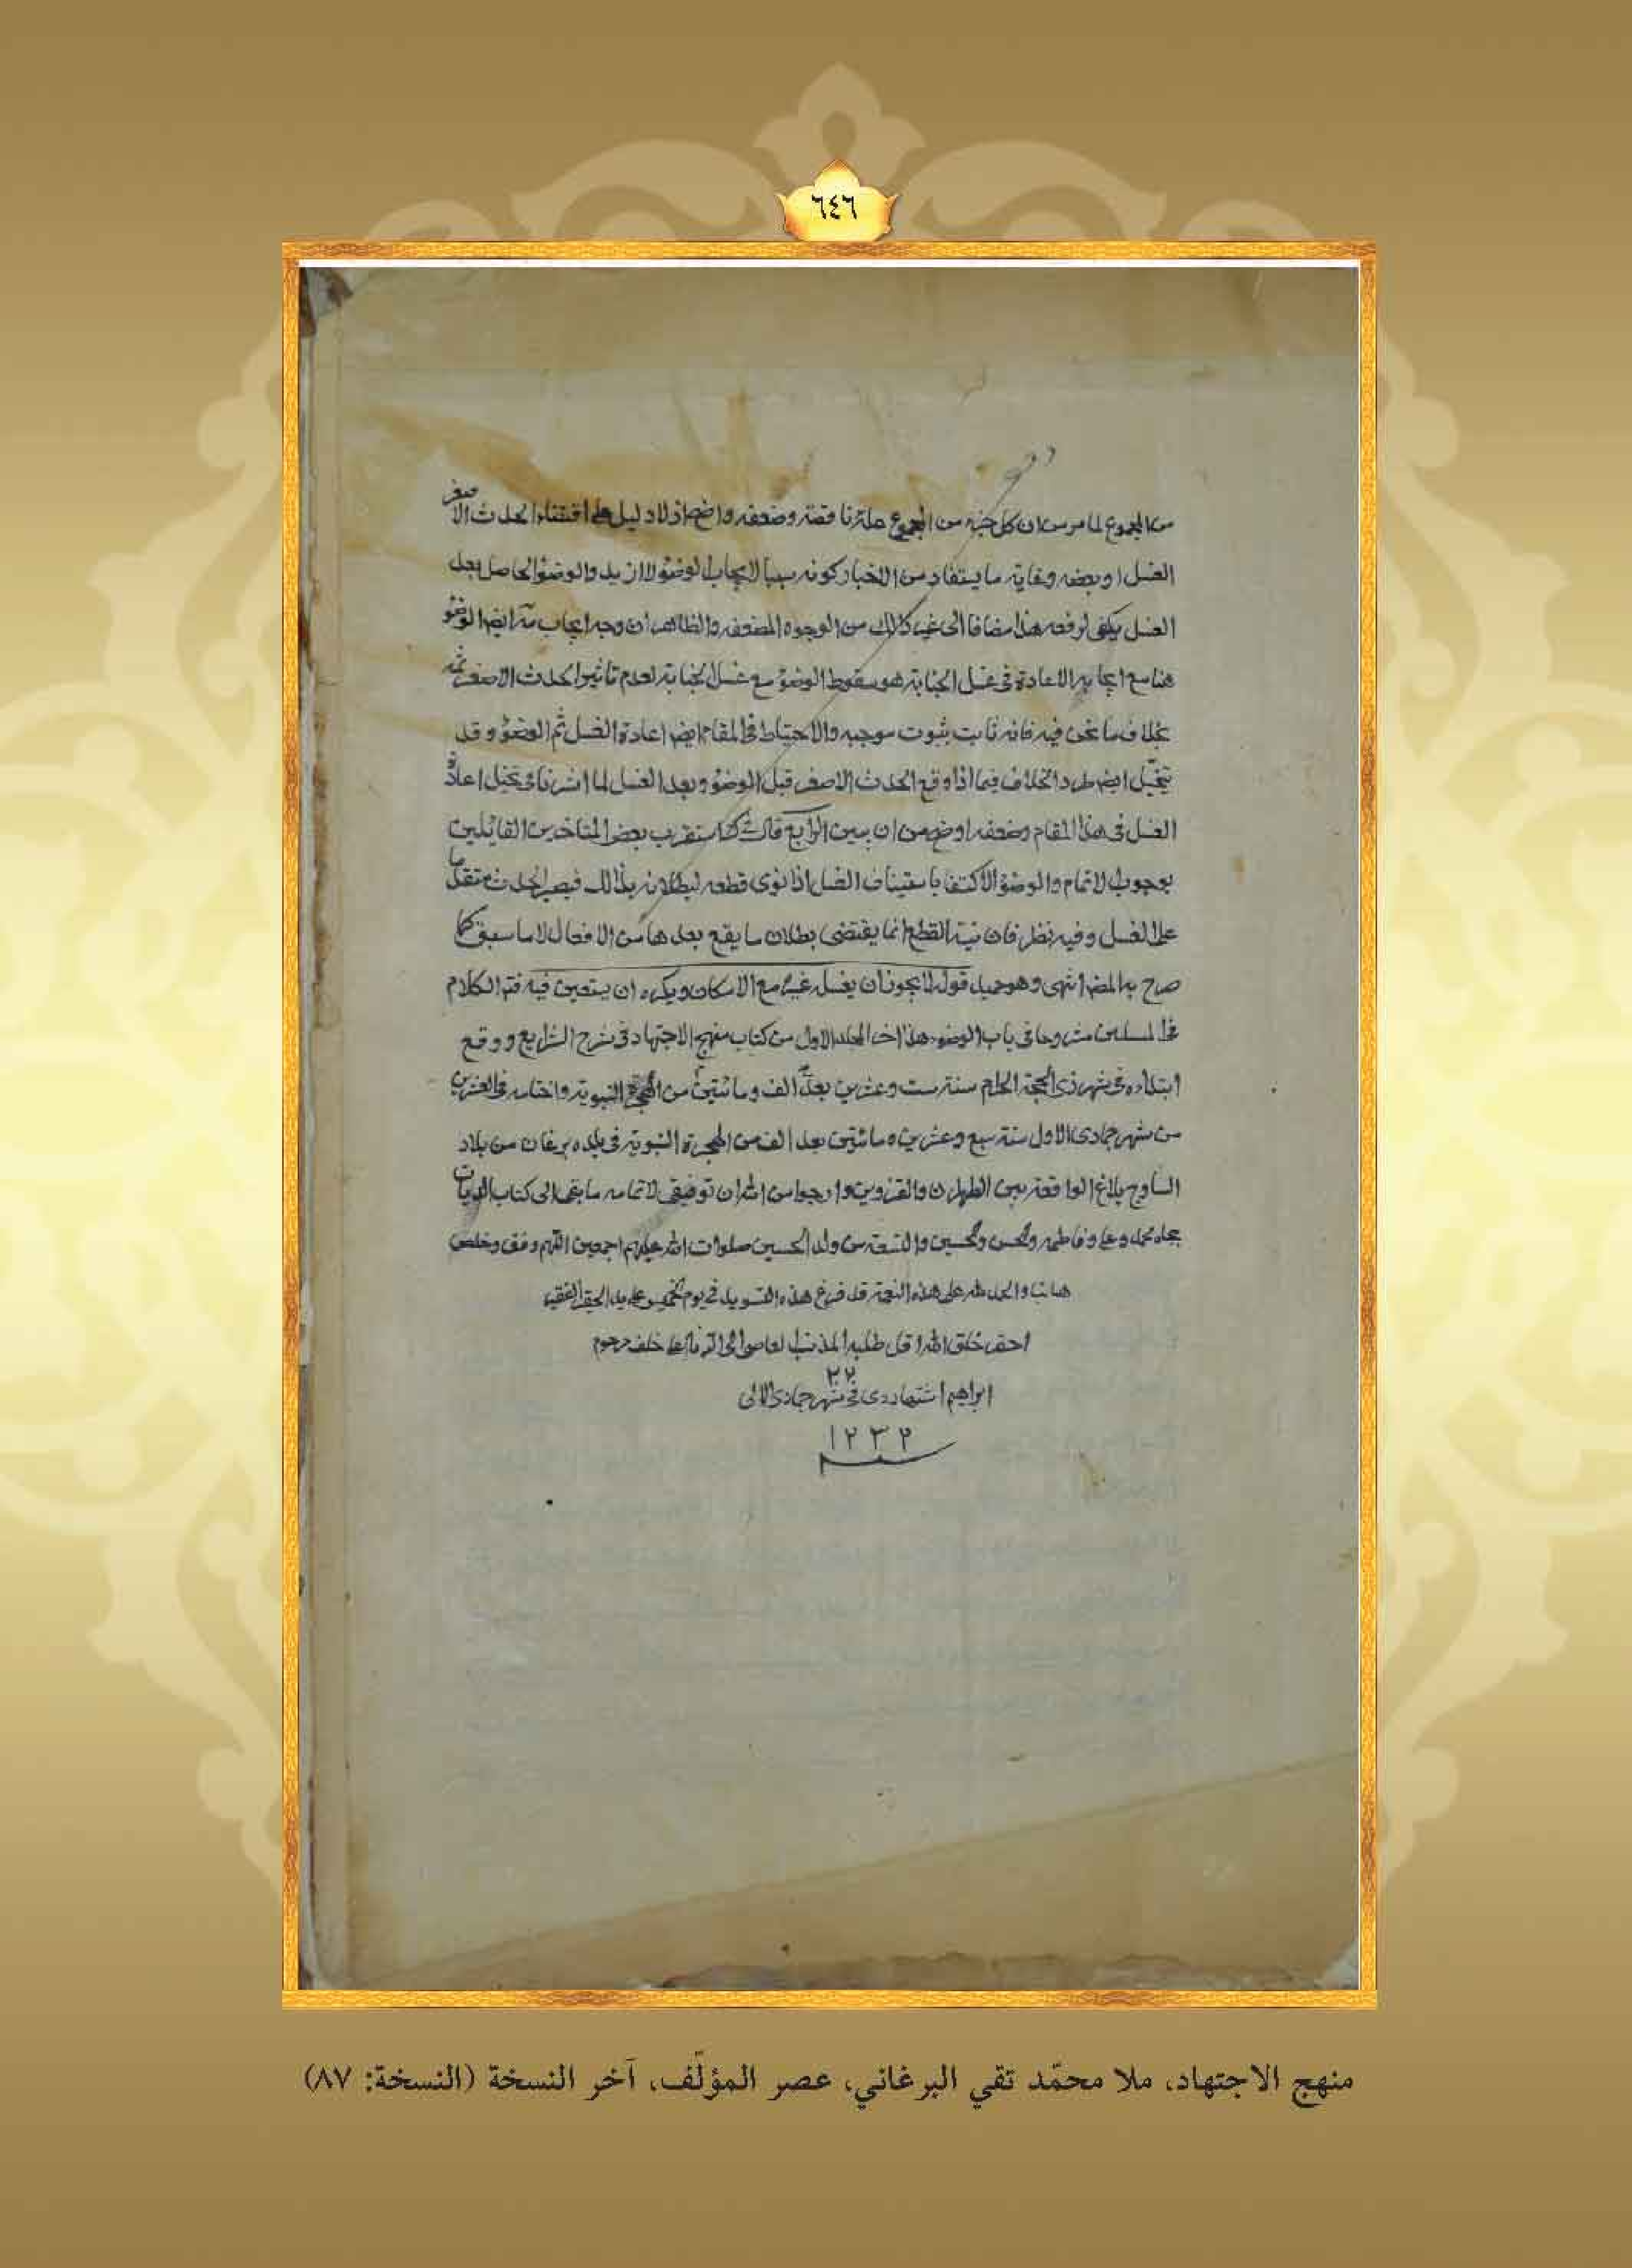 ٦٤٦
من المجموع لما مر من ان كل جزء من المجموع علة ناقصة وضعفه واضح اذ لا دليل على اقتضاء الحدث الاصغر
الغسل او بعضه وغاية ما يستفاد من الاخبار كونه سببا لايجاب الوضوء لا ازيد والوضوء الحاصل بعد
الغسل يكفى لرفعه هذا مضافا الى غير ذلك من الوجوه المضعفه والظاهر ان وجه ايجاب ايض الوضوء
هنا مع ايجابه الاعادة فى غسل الجنابة هو سقوط الوضوء مع غسل الجنابة لعدم تاثير الحدث الاصغر ثمه
بخلاف ما نحن فيه فانه ثابت بثبوت موجبه والاحتياط فى المقام ايض اعادة الغسل ثم الوضوء وقد
يتخيل ايض طرد الخلاف فيما اذا وقع الحدث الاصغر قبل الوضوء وبعد الغسل لما اشرنا فى تخيل اعادة
الغسل فى هذا المقام وضعفه اوضح من ان يبين الرابع قال استقرب بعض المتاخرين القائلين
بوجوب الاتمام والوضوء الاكتفا باستيناف الغسل اذا نوى قطعه لبطلانه بذلك فيصير الحدث متقدما
على الغسل وفيه نظر فان نية القطع انما يقتضى بطلان ما يقع بعدها من الافعال لا ما سبق كما
صرح به المض انتهى وهو جيد قوله لا يجوز ان يغسله غيره مع الامكان ويكره ان يستعين فيه قد مر الكلام
فى المسلتين مشروحا فى باب الوضوء هذا اخر المجلد الاول من كتاب منهج الاجتهاد فى شرح الشرايع ووقع
ابتداءه فى شهر ذى الحجة الحرام سنة ست وعشرين بعد الف ومائتين من الهجرة النبوية واختامه فى العشرين
من شهر جمادى الاول سنة سبع وعشرين ومائتين بعد الف من الهجرة النبوية فى بلده برغان من بلاد
الساوجبلاغ الواقعة بين الطهران والقزوين وارجوا من الله ان توفيقى لاتمامه ما بقى الى كتاب الديات
بجاه محمد وعلى وفاطمه والحسن والحسين والتسعة من ولد الحسين صلوات الله عليهم اجمعين اللهم وفق وخلص
والحمد لله على هذه النعمة قد فرغ هذه التسويد فى يوم الخميس على يد الحقير الفقير
احقر خلق الله اقل طلبه المذنب العاصى خلف مرحوم
ابراهيم اشتهاردى فى شهر جمادى الاولى
٢٢
سنه ١٢٣٢
منهج الاجتهاد، ملا محمّد تقي البرغاني، عصر المؤلّف، آخر النسخة (النسخة: ٨٧)